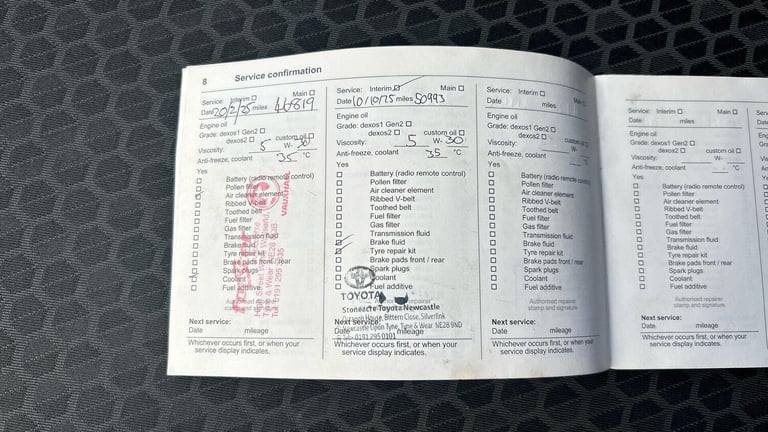 8 Service confirmation
Service: Interim Main
Date 20/2/25 miles 46819
Engine oil
Grade: dexos1 Gen2
dexos2 custom oil
Viscosity: 5 W- 30
Anti-freeze, coolant 35 °C
Yes
Battery (radio remote control)
Pollen filter
Air cleaner element
Ribbed V-belt
Toothed belt
Fuel filter
Gas filter
Transmission fluid
Brake fluid
Tyre repair kit
Brake pads front / rear
Spark plugs
Coolant
Fuel additive
VAUXHALL
Next service:
Date mileage
Whichever occurs first, or when your
service display indicates.
Service: Interim Main
Date 10/10/25 miles 50993
Engine oil
Grade: dexos1 Gen2
dexos2 custom oil
Viscosity: 5 W- 30
Anti-freeze, coolant 35 °C
Yes
Battery (radio remote control)
Pollen filter
Air cleaner element
Ribbed V-belt
Toothed belt
Fuel filter
Gas filter
Transmission fluid
Brake fluid
Tyre repair kit
Brake pads front / rear
Spark plugs
Coolant
Fuel additive
TOYOTA
Stoneacre Toyota Newcastle
House, Bittern Close, Silverlink
Newcastle Upon Tyne, Tyne & Wear NE28 9ND
Tel: 0191 295 0101
Next service:
Date mileage
Whichever occurs first, or when your
service display indicates.
Service: Interim Main
Date miles
Engine oil
Grade: dexos1 Gen2
dexos2 custom oil
Viscosity: W-
Anti-freeze, coolant °C
Yes
Battery (radio remote control)
Pollen filter
Air cleaner element
Ribbed V-belt
Toothed belt
Fuel filter
Gas filter
Transmission fluid
Brake fluid
Tyre repair kit
Brake pads front / rear
Spark plugs
Coolant
Fuel additive
Authorised repairer
stamp and signature
Next service:
Date mileage
Whichever occurs first, or when your
service display indicates.
Service: Interim Main
Date miles
Engine oil
Grade: dexos1 Gen2
dexos2 custom oil
Viscosity: W-
Anti-freeze, coolant °C
Yes
Battery (radio remote control)
Pollen filter
Air cleaner element
Ribbed V-belt
Toothed belt
Fuel filter
Gas filter
Transmission fluid
Brake fluid
Tyre repair kit
Brake pads front / rear
Spark plugs
Coolant
Fuel additive
Authorised repairer
stamp and signature
Next service:
Date mileage
Whichever occurs first, or when your
service display indicates.